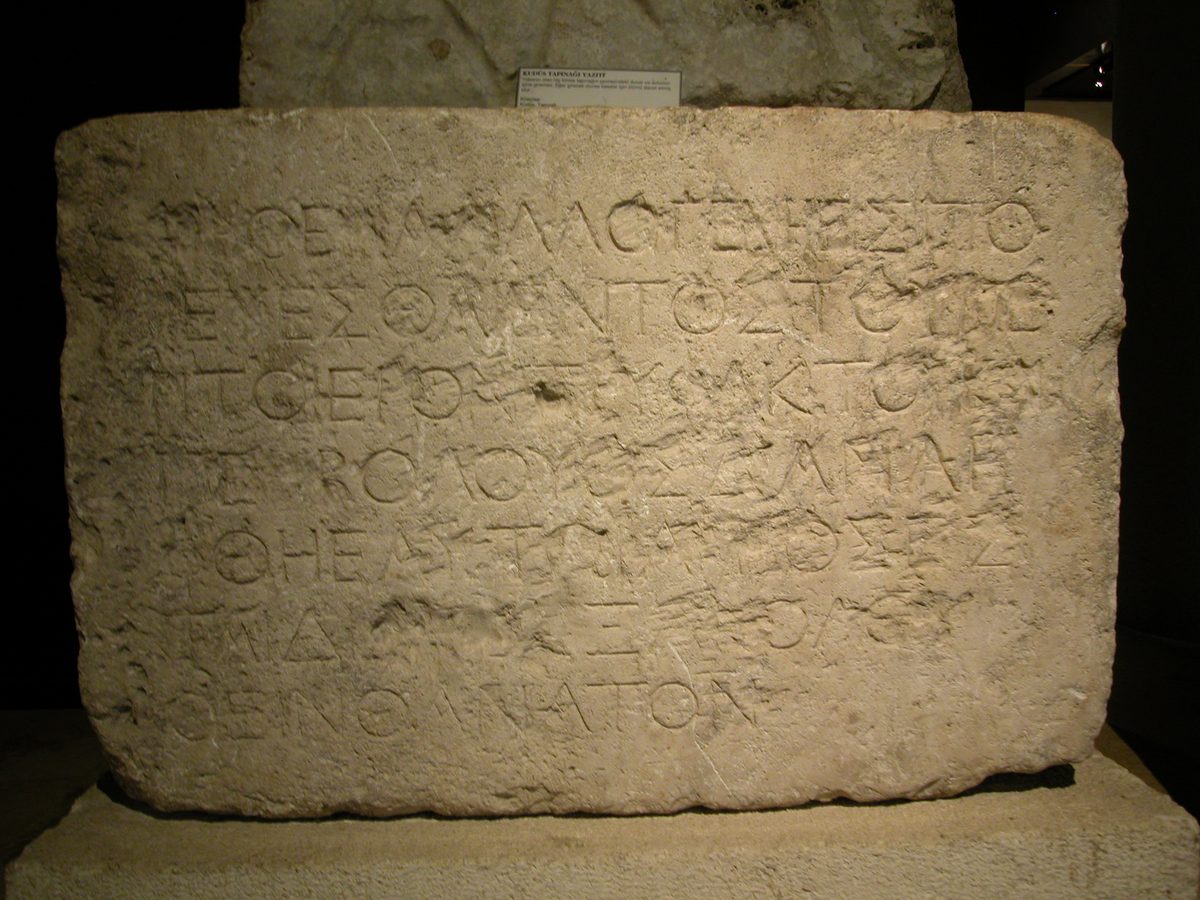 KUDÜS TAPINAĞI YAZITI
ΜΗΘΕΝΑΑΛΛΟΓΕΝΗΕΙΣΠΟ
ΡΕΥΕΣΘΑΙΕΝΤΟΣΤΟΥΠΕ
ΡΙΤΟΙΕΡΟΝΤΡΥΦΑΚΤΟΥΚΑΙ
ΠΕΡΙΒΟΛΟΥΟΣΔΑΝΛΗ
ΦΘΗΕΑΥΤΩΙΑΙΤΙΟΣΕΣ
ΤΑΙΔΙΑΤΟΕΞΑΚΟΛΟΥ
ΘΕΙΝΘΑΝΑΤΟΝ